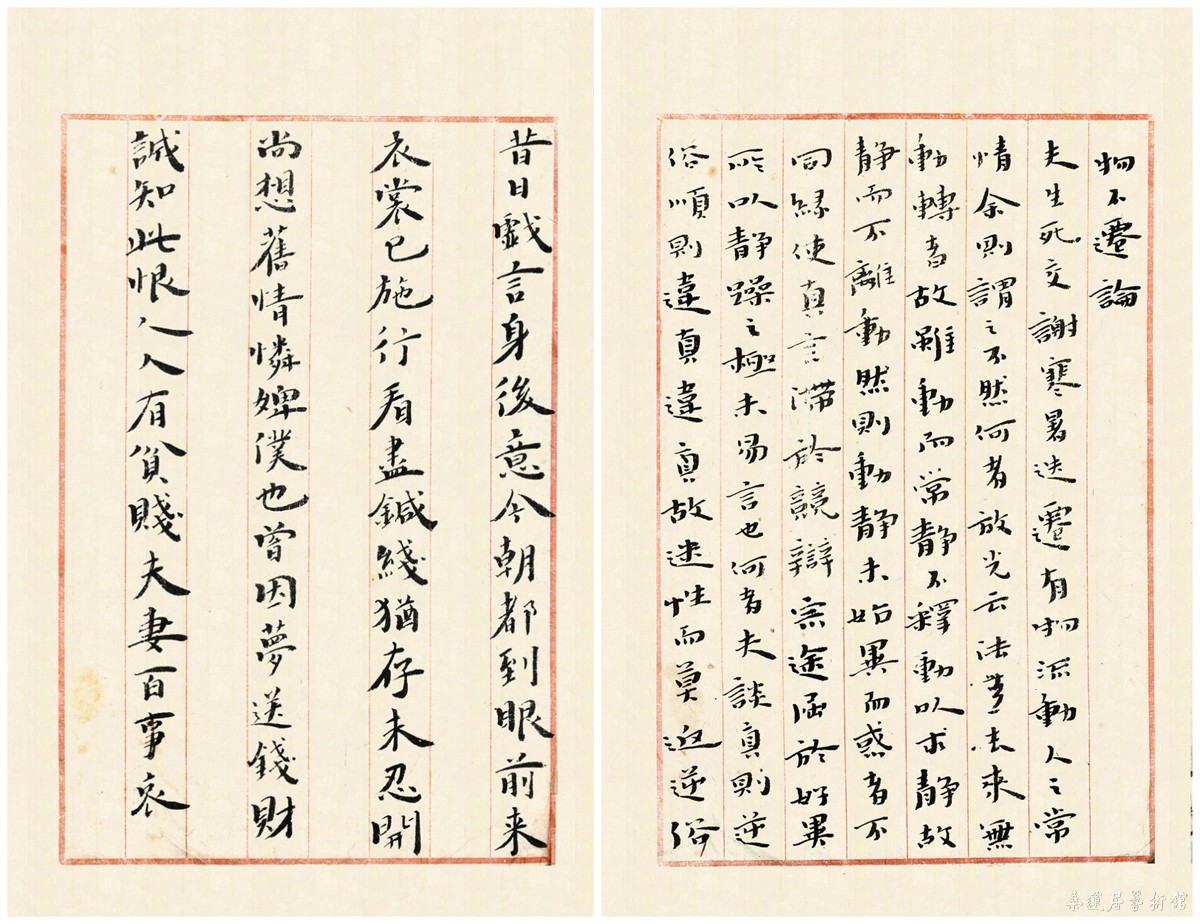 物不遷論
夫生死交謝寒暑迭遷有物流動人之常
情余則謂之不然何者放光云法無去来無
動轉者故雖動而常静不釋動以求静故
静而不離動然則動静未始異而惑者不
同緣使真言滯於競辯宗途屈於好異
所以静躁之極未易言也何者夫談真則逆
俗順則違真違真故迷性而莫返逆俗
昔日戲言身後意今朝都到眼前来
衣裳已施行看盡鍼綫猶存未忍開
尚想舊情憐婢僕也曾因夢送錢財
誠知此恨人人有貧賤夫妻百事哀
桑蓮居藝術館